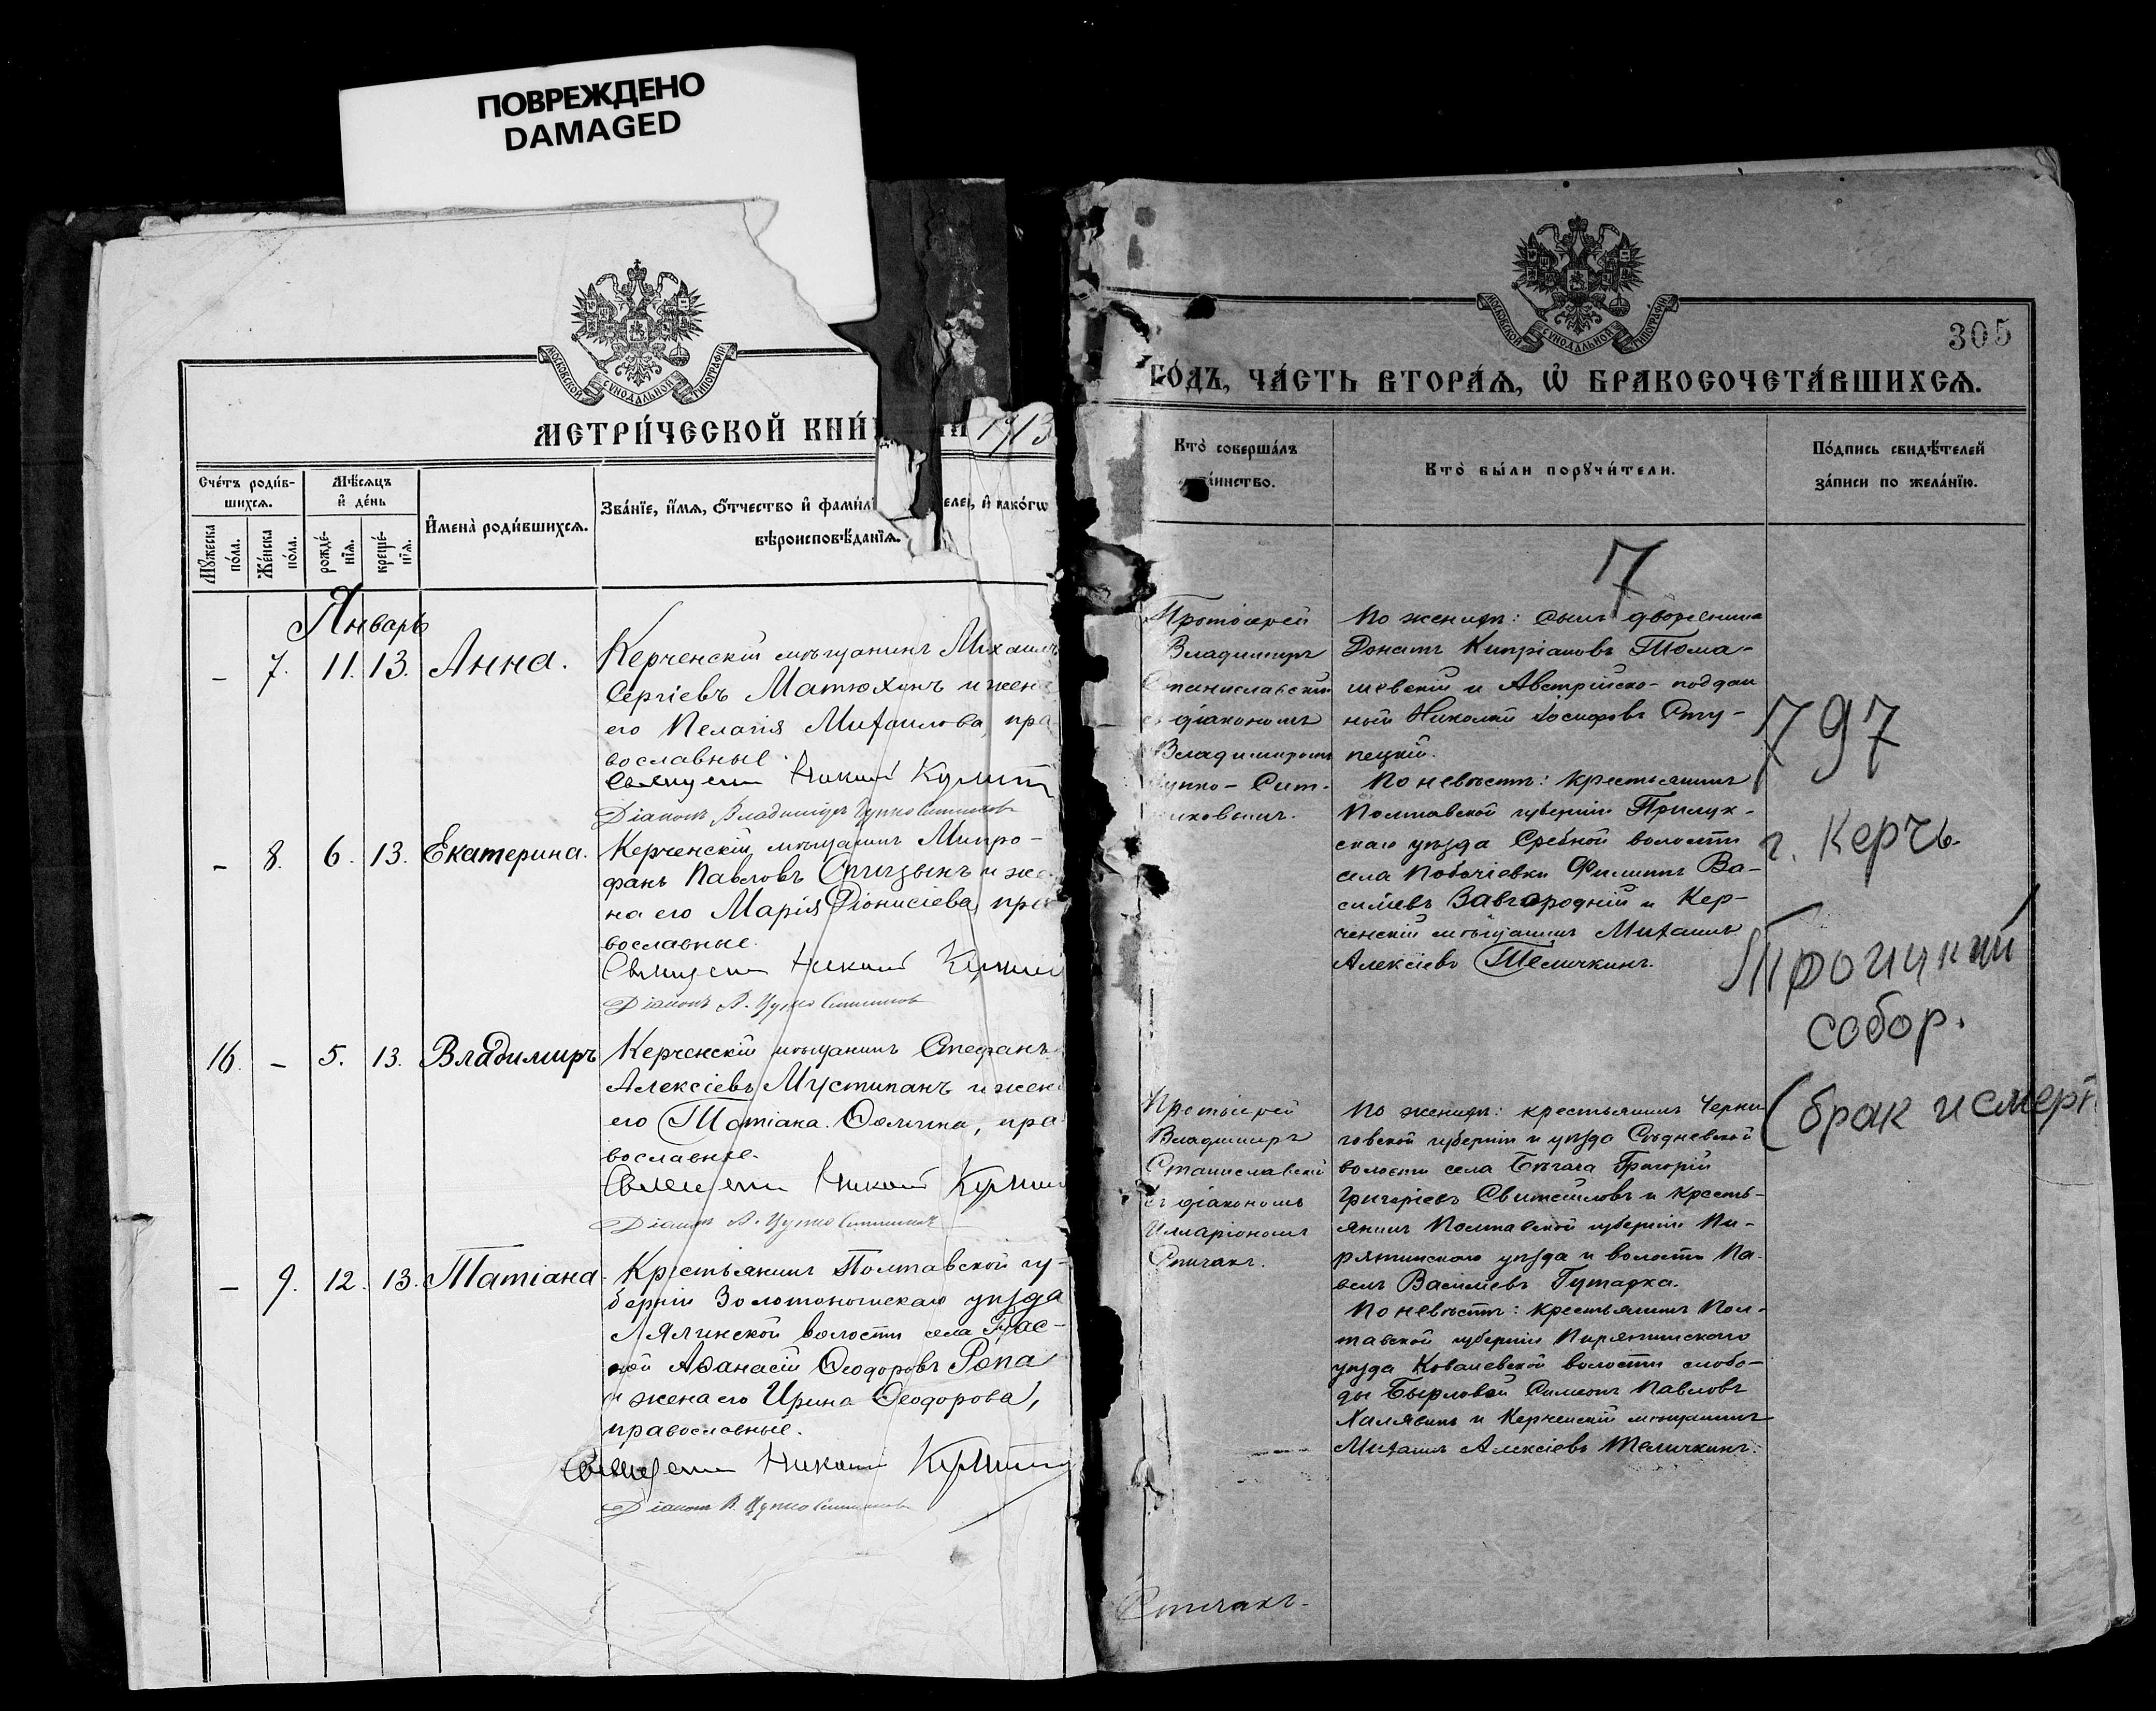 ПОВРЕЖДЕНО
DAMAGED
МОСКОВСКОЙ СУНОДАЛЬНОЙ ТИПОГРАФІИ
МЕТРИ́ЧЕСКОЙ КНИ́ 1913
Счéтъ роди́в-
шихся.
Мѣ́сяцъ
и҆ дéнь
Мꙋ́жеска
по́ла.
Жéнска
по́ла.
рождé-
нїѧ.
крещé-
нїѧ.
И҆менà роди́вшихсѧ.
Звáнїе, и҆́мѧ, ѻ҆́тчество и҆ фами́л елей, и҆ какóгѡ
вѣроисповѣ́данїѧ.
Январь
– 7. 11. 13. Анна.
Керченскій мѣщанинъ Михаилъ
Сергіевъ Матюхинъ и жена
его Пелагія Михаилова, пра
вославные.
Діаконъ Владиміръ
– 8. 6. 13. Екатерина.
Керченскій мѣщанинъ Митро-
фанъ Павловъ Спицынъ и же
на его Марія Діонисіева, пра
вославные.
Діаконъ В.
16. – 5. 13. Владимиръ
Керченскій мѣщанинъ Стефанъ
Алексіевъ Мустипанъ и жена
его Татіана Ѳомина, пра
вославные.
Діаконъ В.
– 9. 12. 13. Татіана
Крестьянинъ Полтавской гу-
берніи Золотоношскаго уѣзда
Лялинской волости села
Аѳанасій Ѳеодоровъ Репа
и жена его Ирина Ѳеодорова,
православные.
Діаконъ В.
МОСКОВСКОЙ СУНОДАЛЬНОЙ ТИПОГРАФІИ
305
ГÓДЪ, ЧÁСТЬ ВТОРÁѦ, Ѡ҆ БРАКОСОЧЕТÁВШИХСѦ.
Ктò совершáлъ
тáинство.
Ктò бы́ли порꙋчи́тели.
Пóдпись свидѣ́телей
зáписи по желáнїю.
7
Протоіерей
Владимиръ
Станиславскій
съ діакономъ
Владимиромъ
По женихѣ: сынъ дворянина
Донатъ Кипріановъ Тома-
шевскій и Австрійско-поддан
ный Николай Іосифовъ Сту-
пецкій.
По невѣстѣ: крестьянинъ
Полтавской губерніи Прилук-
скаго уѣзда Сребной волости
села Побочіевки Филиппъ Ва-
силіевъ Завгородній и Кер-
ченскій мѣщанинъ Михаилъ
Алексіевъ Теличкинъ.
797
г. Керчь.
Троицкий
собор.
(брак и смерт
Протоіерей
Владимиръ
Станиславскій
съ діакономъ
Иларіономъ
Спичакъ.
По женихѣ: крестьянинъ Черни
говской губерніи и уѣзда Сѣдневской
волости села Бѣгача Григорій
Григоріевъ Свитайловъ и кресть-
янинъ Полтавской губерніи Пи-
рятинскаго уѣзда и волости Па-
велъ Василіевъ Гутарка.
По невѣстѣ: крестьянинъ Пол-
тавской губерніи Пирятинскаго
уѣзда Ковалевской волости слобо-
ды Бырловой Симеонъ Павловъ
Халявинъ и Керченскій мѣщанинъ
Михаилъ Алексіевъ Теличкинъ.
Спичакъ.